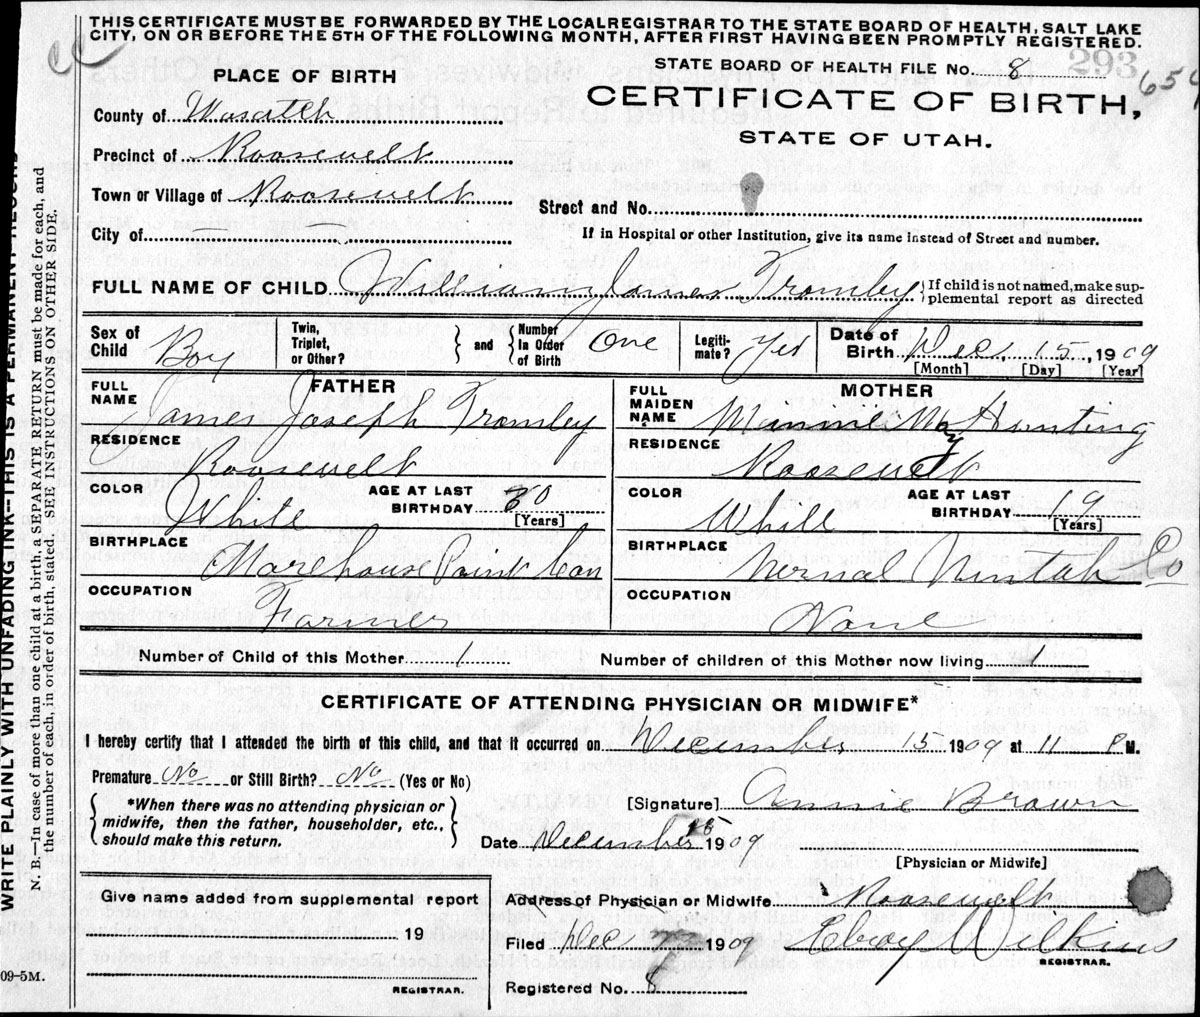 THIS CERTIFICATE MUST BE FORWARDED BY THE LOCAL REGISTRAR TO THE STATE BOARD OF HEALTH, SALT LAKE
CITY, ON OR BEFORE THE 5TH OF THE FOLLOWING MONTH, AFTER FIRST HAVING BEEN PROMPTLY REGISTERED.
STATE BOARD OF HEALTH FILE No. 8
293
659
PLACE OF BIRTH
CERTIFICATE OF BIRTH,
STATE OF UTAH.
County of Wasatch
Precinct of Roosevelt
Town or Village of Roosevelt
Street and No.
City of
If in Hospital or other Institution, give its name instead of Street and number.
FULL NAME OF CHILD William James Tromley
{If child is not named, make sup-
plemental report as directed
Sex of Child Boy
Twin, Triplet, or Other? } and { Number In Order of Birth One
Legiti-mate? Yes
Date of Birth Dec, 15, 1909
[Month] [Day] [Year]
FATHER
FULL NAME James Joseph Tromley
RESIDENCE Roosevelt
COLOR White
AGE AT LAST BIRTHDAY 30
[Years]
BIRTHPLACE Morehouse Point Can
OCCUPATION Farmer
MOTHER
FULL MAIDEN NAME Minnie May Hunting
RESIDENCE Roosevelt
COLOR White
AGE AT LAST BIRTHDAY 19
[Years]
BIRTHPLACE Vernal Uintah Co
OCCUPATION None
Number of Child of this Mother 1
Number of children of this Mother now living 1
CERTIFICATE OF ATTENDING PHYSICIAN OR MIDWIFE*
I hereby certify that I attended the birth of this child, and that it occurred on December 15 1909 at 11 P M.
Premature No or Still Birth? No (Yes or No)
{ *When there was no attending physician or
midwife, then the father, householder, etc.,
should make this return. }
[Signature] Annie Brown
Date December 15 1909
[Physician or Midwife]
Give name added from supplemental report
19
REGISTRAR.
Address of Physician or Midwife Roosevelt
Filed Dec 1909 Leroy Wilkins
REGISTRAR.
Registered No. 8
09-5M.
WRITE PLAINLY WITH UNFADING INK--THIS IS A PERMANENT RECORD
N. B.—In case of more than one child at a birth, a SEPARATE RETURN must be made for each, and
the number of each, in order of birth, stated. SEE INSTRUCTIONS ON OTHER SIDE.